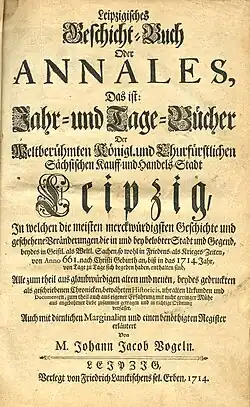 Leipzigisches
Geschicht-Buch
Oder
ANNALES,
Das ist:
Jahr- und Tage-Bücher
Der
Weltberühmten Königl. und Churfürstlichen
Sächsischen Kauff- und Handels-Stadt
Leipzig,
In welchen die meisten merckwürdigsten Geschichte und
geschehene Veränderungen, die in und bey belobter Stadt und Gegend,
beydes in Geistl. als Weltl. Sachen, so wohl in Friedens- als Krieges-Zeiten,
von Anno 661. nach Christi Geburth an, bis in das 1714. Jahr,
von Tage zu Tage sich begeben haben, enthalten sind,
Alle zum theil aus glaubwürdigen alten und neuen, beydes gedruckten
als geschriebenen Chronicken, bewährten Historicis, uhralten Uhrkunden und
Documenten, zum theil auch aus eigener Erfahrung mit nicht geringer Mühe
und ungesparter Liebe zusammen getragen und in richtige Ordnung
verfasset,
Auch mit dienlichen Marginalien und einem benöthigten Register
erläutert
Von
M. Johann Jacob Vogeln.
LEIPZIG,
Verlegt von Friedrich Lanckischens sel. Erben, 1714.